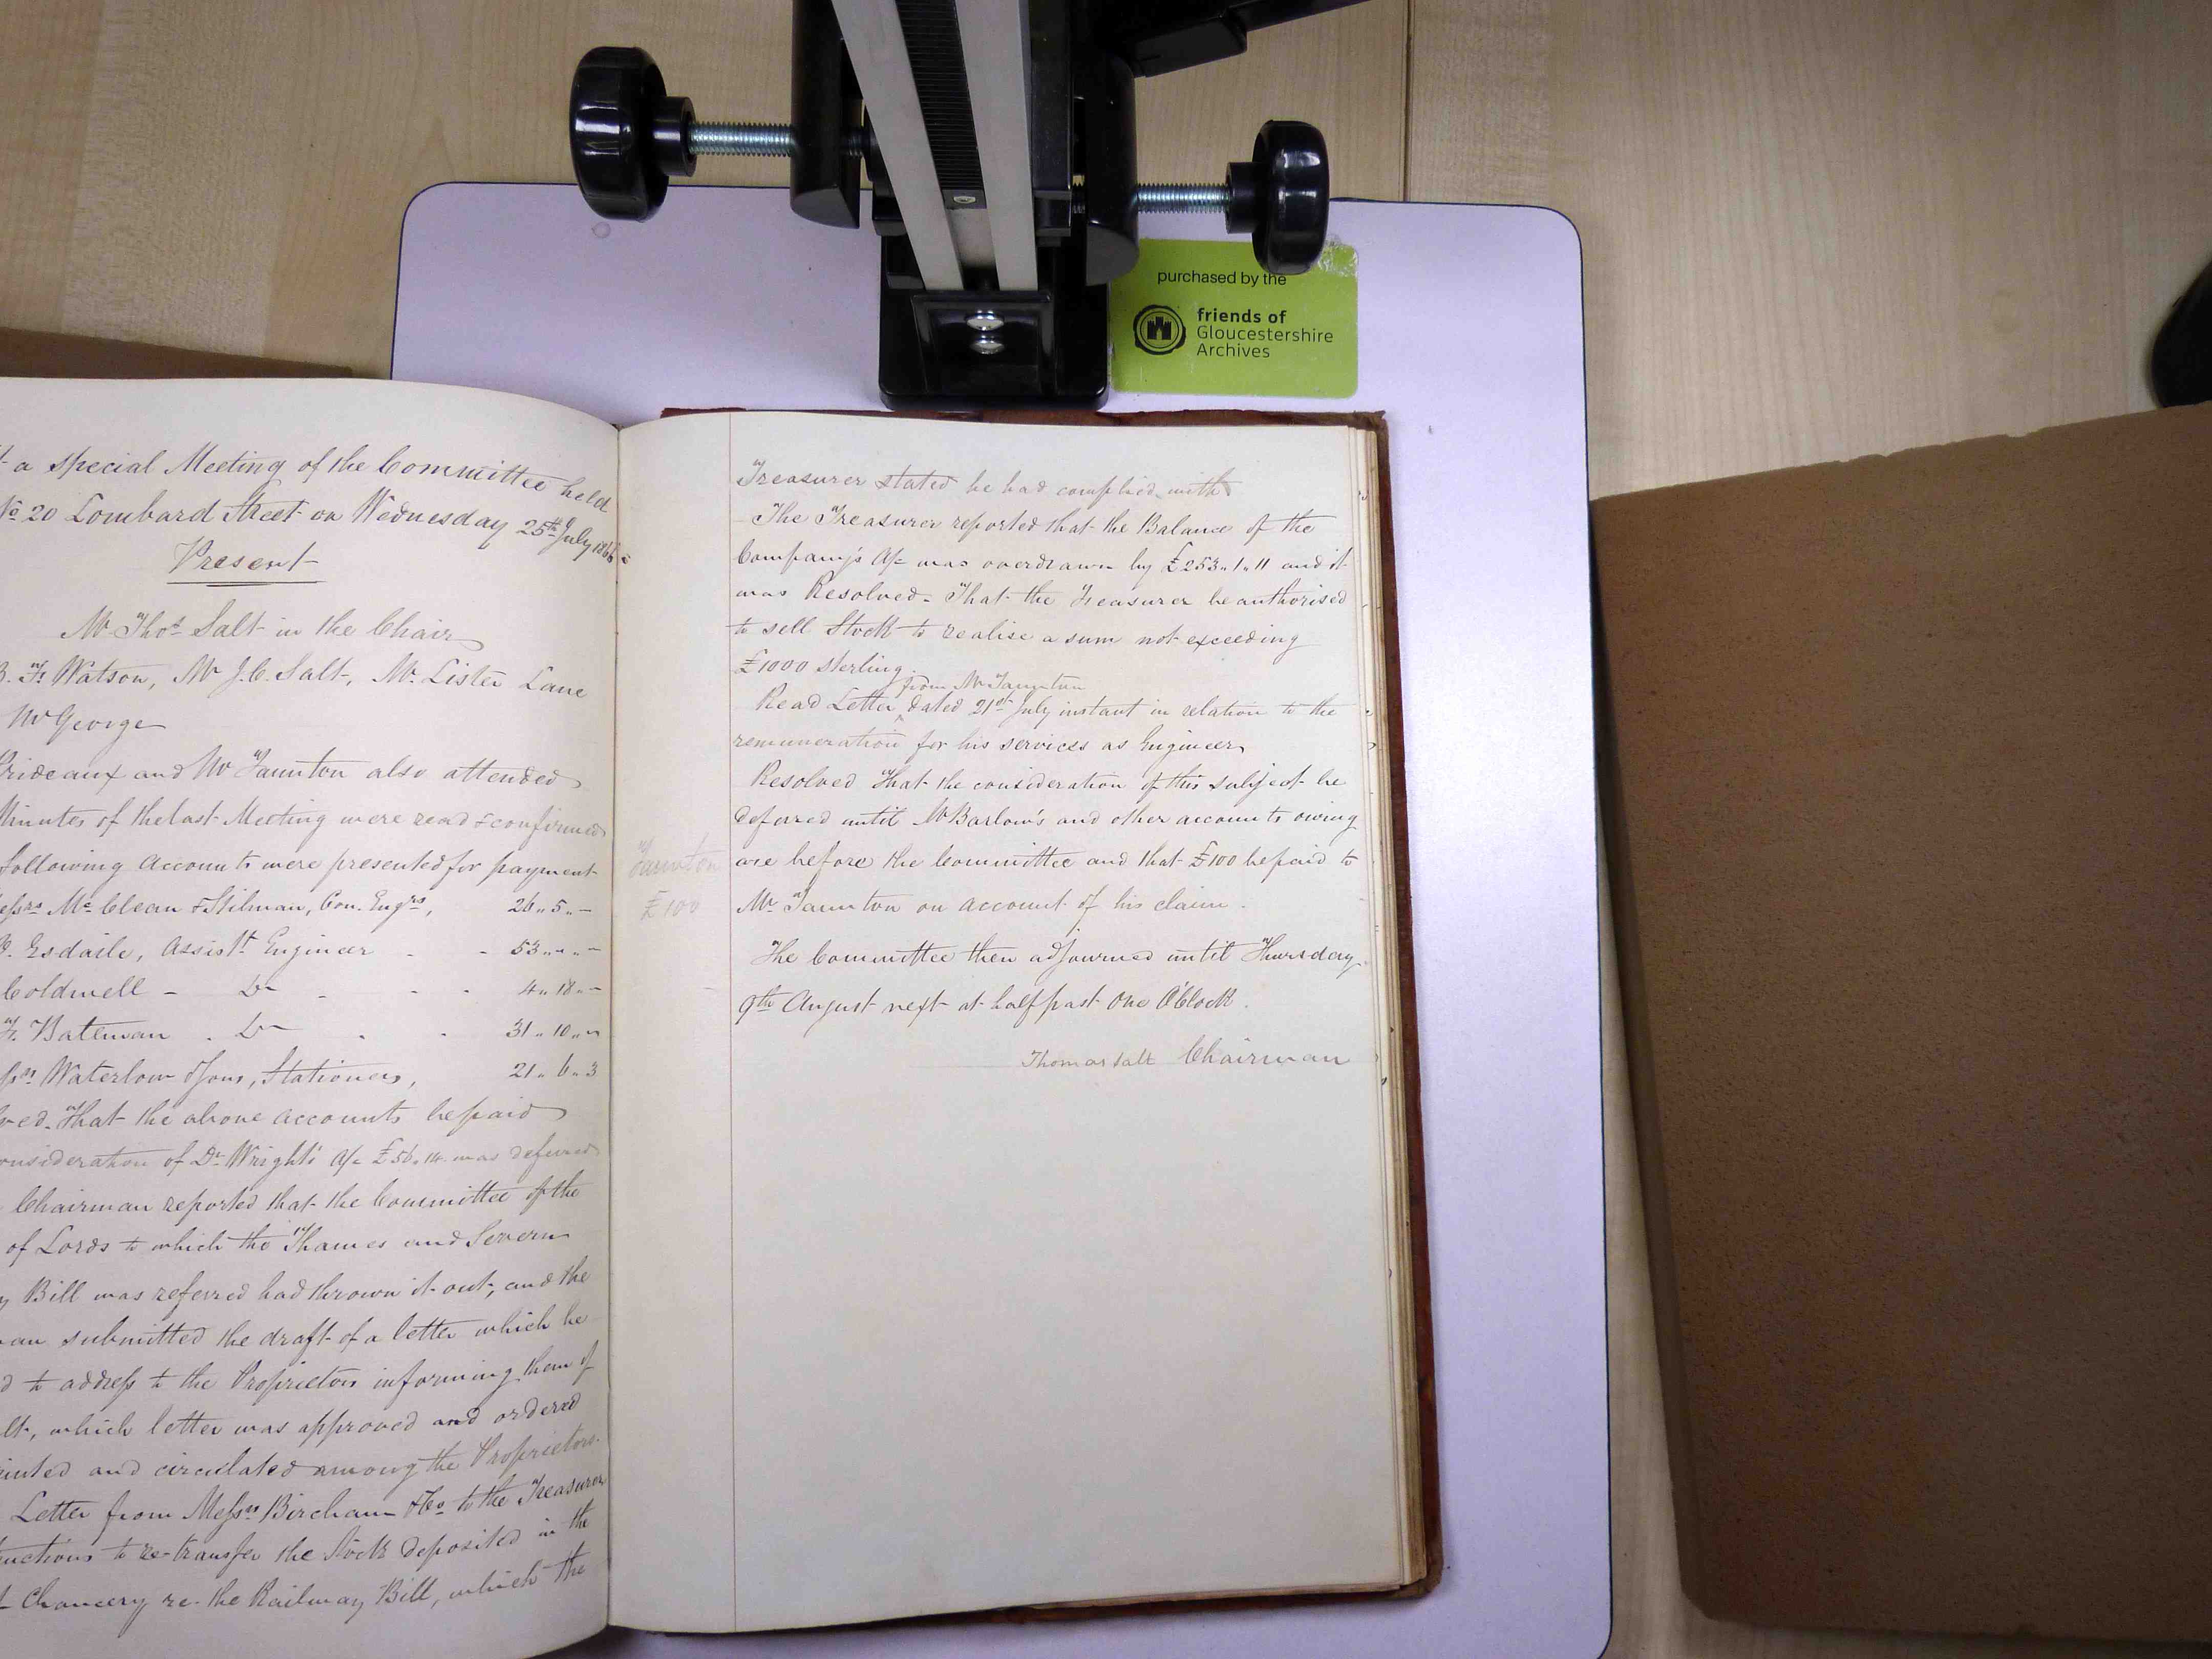 purchased by the
friends of
Gloucestershire
Archives
a special Meeting of the Committee held
No 20 Lombard Street on Wednesday 25th July 1866
Present
Mr Thos Salt in the Chair
Fr. Watson, Mr J. C. Salt, Mr Lister Lane
Mr George
Prideaux and Mr Taunton also attended
Minutes of the last Meeting were read & confirmed
following Accounts were presented for payment
Mc Clean & Stilman, Con. Engrs, 26 " 5 " -
Esdaile, Assist Engineer - - 53 " - " -
Coldwell - Do - - - 4 " 18 " -
Fr. Bateman . Do - . 31 " 10 " "
Waterlow & Sons, Stationers, 21 " 6 " 3
That the above accounts be paid
consideration of Dr Wright's A/c £56 " 14 was deferred
Chairman reported that the Committee of the
of Lords to which the Thames and Severn
Bill was referred had thrown it out, and the
submitted the draft of a letter which he
to address to the Proprietors informing them of
which letter was approved and ordered
and circulated among the Proprietors.
Letter from Messrs Bircham & Co to the Treasurer
to re-transfer the Stock deposited in the
Chancery re the Railway Bill, which the
Treasurer stated he had complied with
The Treasurer reported that the Balance of the
Company's A/c was overdrawn by £253 " 1 " 11 and it
was Resolved. That the Treasurer be authorised
to sell Stock to realise a sum not exceeding
£1000 sterling.
from Mr Taunton
Read Letter ^ dated 21st July instant in relation to the
remuneration for his services as Engineer
Resolved That the consideration of this subject be
deferred until Mr Barlow's and other accounts owing
are before the Committee and that £100 be paid to
Mr Taunton on account of his claim.
Taunton
£100
The Committee then adjourned until Thursday
9th August next at half past One O'Clock.
Thomas Salt Chairman